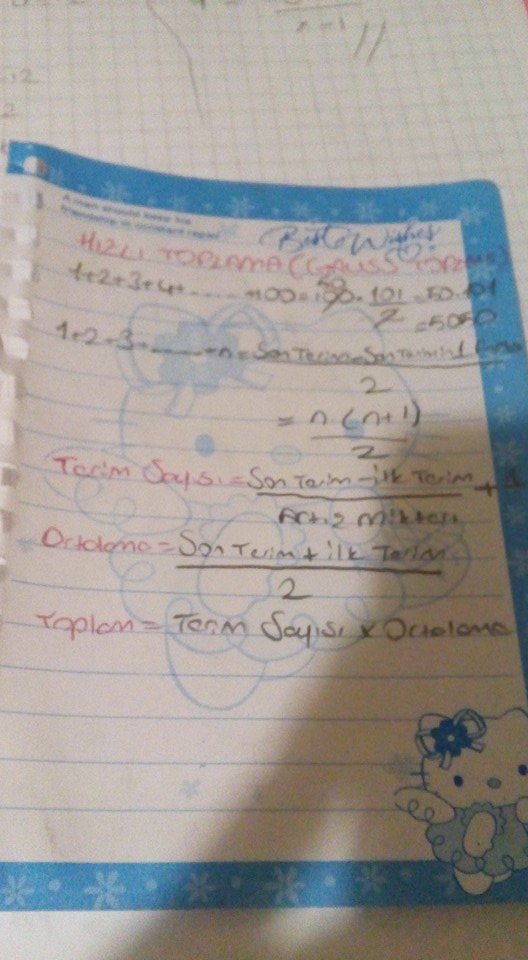 x-1
A man should keep his
friendship in constant repair
Best Wishes
HIZLI TOPLAMA (GAUSS
1+2+3+4+......+100=100.101/2=50.101
=5050
1+2+3+......+n=Son Terim.Son Terimin1
2
= n.(n+1)
2
Terim Sayısı=Son Terim-ilk Terim + 1
Artış Miktarı
Ortalama=Son Terim + ilk Terim
2
Toplam = Terim Sayısı x Ortalama